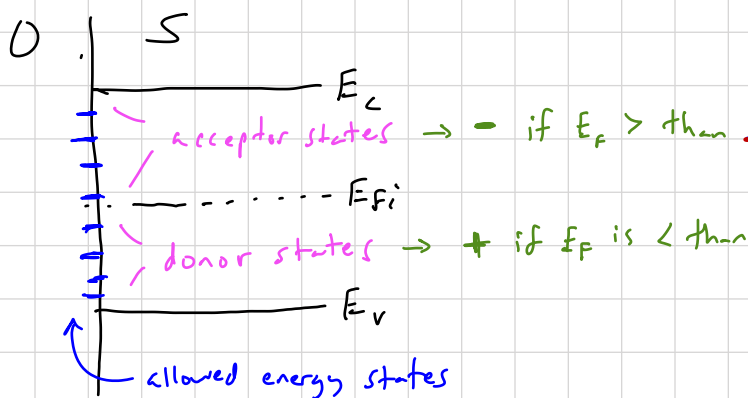 O S
E_c
acceptor states → - if E_F > than
E_Fi
donor states → + if E_F is < than
E_v
allowed energy states